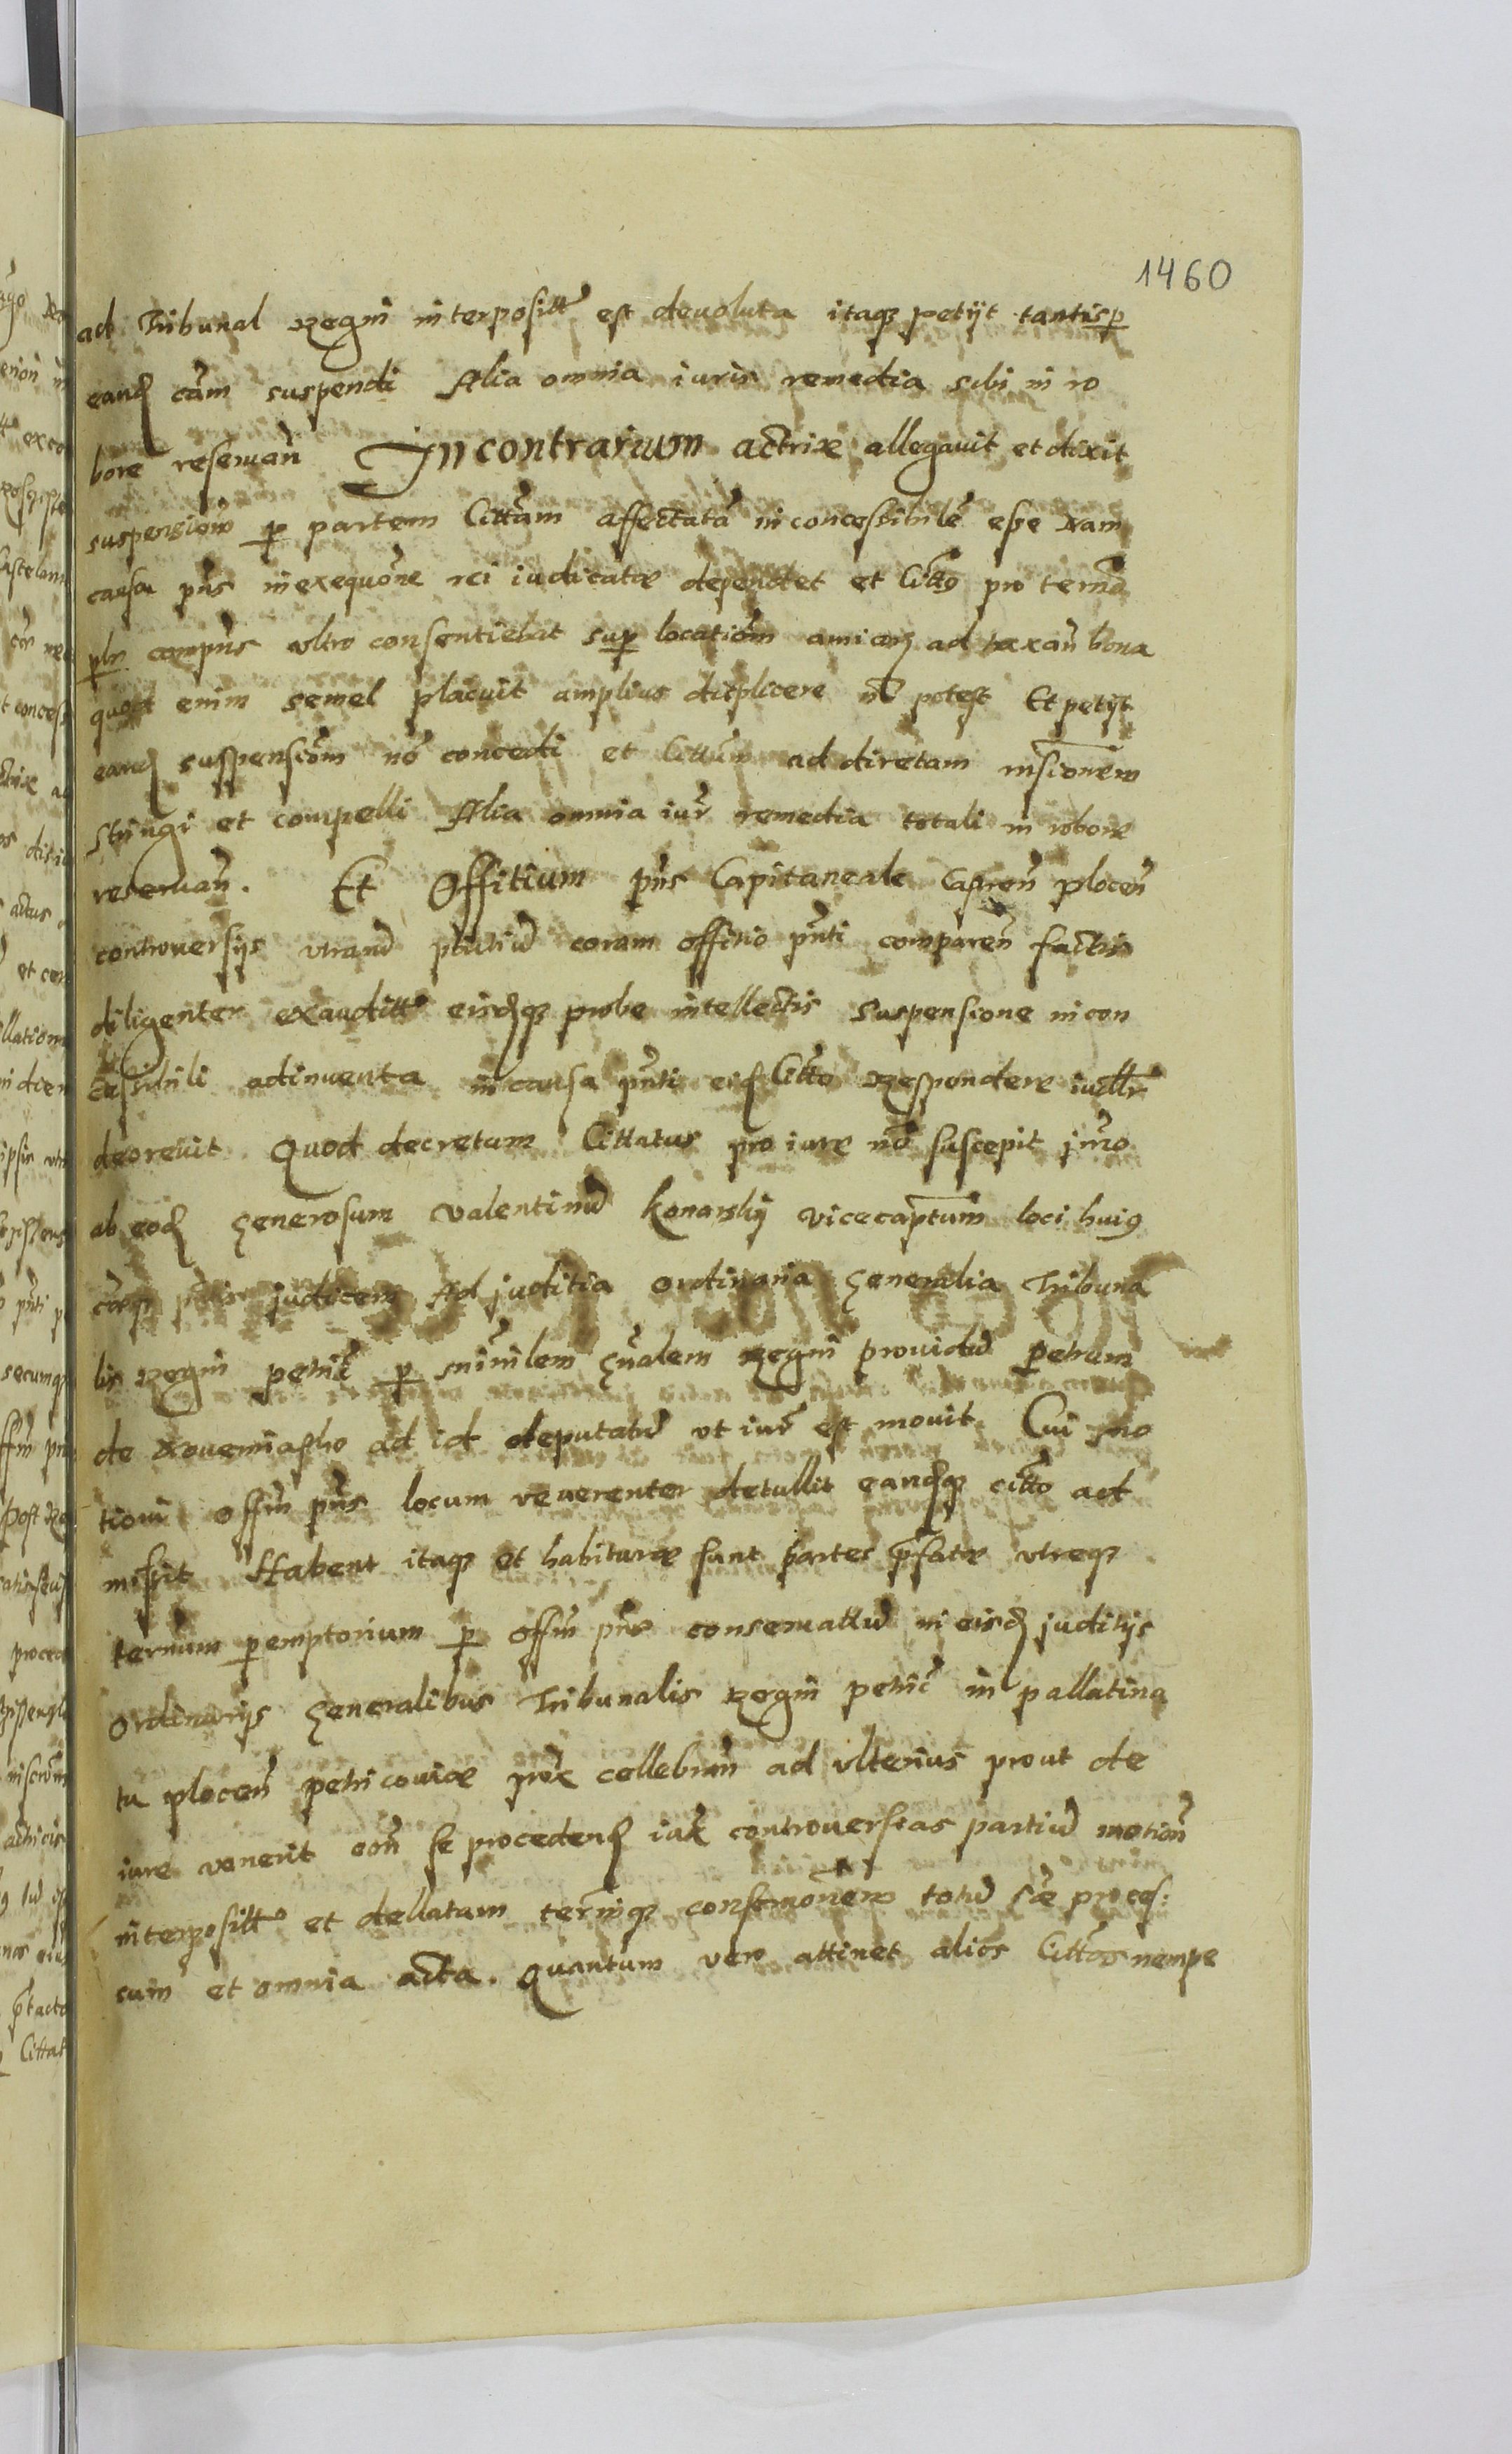 1460
ad Tribunal Regni interposittā est deuoluta itaq₃ petijt tantisp
eand cām suspendi Alia omnia iuris remedia sibi in ro
bore reseruan̄ In contrarium actrix allegauit et dixit
suspensionē p partem Cittām affectatā inconcessibilē esse Nam
causa pn̄s in exequōne rei iudicatæ dependet et Citt9 pro termō
compn̄s vltro consentiebat sup locatiōm amicor ad taxan̄ bona
quod enim semel placuit amplius displicere nō potest Et petijt
eand suspensiōm nō concedi et Cittūm ad diretam
stringi et compelli Alia omnia iur̄ remedia totali in robore
reseruan̄. Et Offitium pn̄s Capitaneale Castren̄ plocen̄
controuersijs vtrarū ptiū coram offitio pn̄ti comparen̄ factis
diligenter exauditt eisdq₃ probe intellectis Suspensione incon
cessibili adinuenta in causa pn̄ti eid Citto Respondere iudlr̄
decreuit Quod decretum Cittatus pro iure nō suscepit jmo
ab eod Generosum Valentinū Konarskij vicecaptum loci hui9
judicem Ad juditia ordinaria Generalia Tribuna
lis Regni petric̄ p minrlem Gnālem Regni prouidū petrum
de ad id deputatū vt iur̄ est mouit Cui mo
tioni offm pn̄s locum reuerenter detullit eandq₃ citto ad
missit Habent itaq₃ et habituræ sunt partes pfatæ vtreq₃
termum pemptorium p offm pn̄s conseruattū in eisd juditijs
Ordinarijs Generalibus Tribunalis Regni petric̄ in pallatina
tu plocen̄ petricouiæ prox cellebran̄ ad vlterius prout de
iure venerit cōn se procedend iux controuersias partiū motiōn
interpositt et dellatam termīq₃ totū cæ proces:
sum et omnia acta. Quantum vero attinet alios Cittos nempe